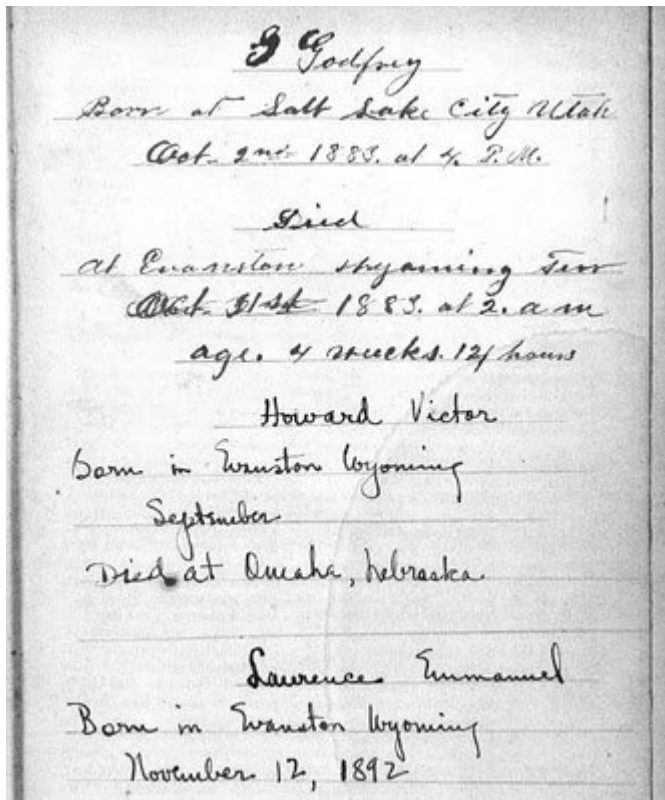 G Godfrey
Born at Salt Lake City Utah
Oct. 2nd 1883. at 4. P.M.
Died
at Evanston Wyoming Terr
Oct. 31st 1883. at 2. a m
age. 4 weeks. 12 hours
Howard Victor
Born in Evanston Wyoming
September
Died at Omaha, Nebraska
Laurence Emmanuel
Born in Evanston Wyoming
November 12, 1892